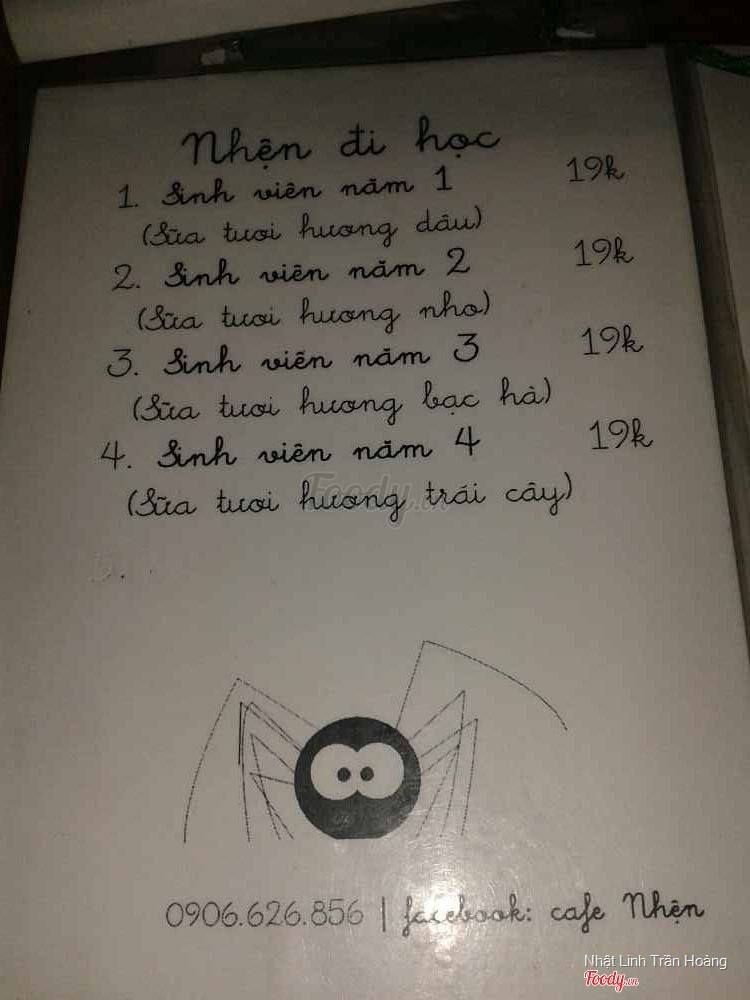 Nhện đi học
1. Sinh viên năm 1 19k
(Sữa tươi hương dâu)
2. Sinh viên năm 2 19k
(Sữa tươi hương nho)
3. Sinh viên năm 3 19k
(Sữa tươi hương bạc hà)
4. Sinh viên năm 4 19k
(Sữa tươi hương trái cây)
Foody.vn
0906.626.856 | facebook: cafe Nhện
Nhật Linh Trần Hoảng
Foody.vn